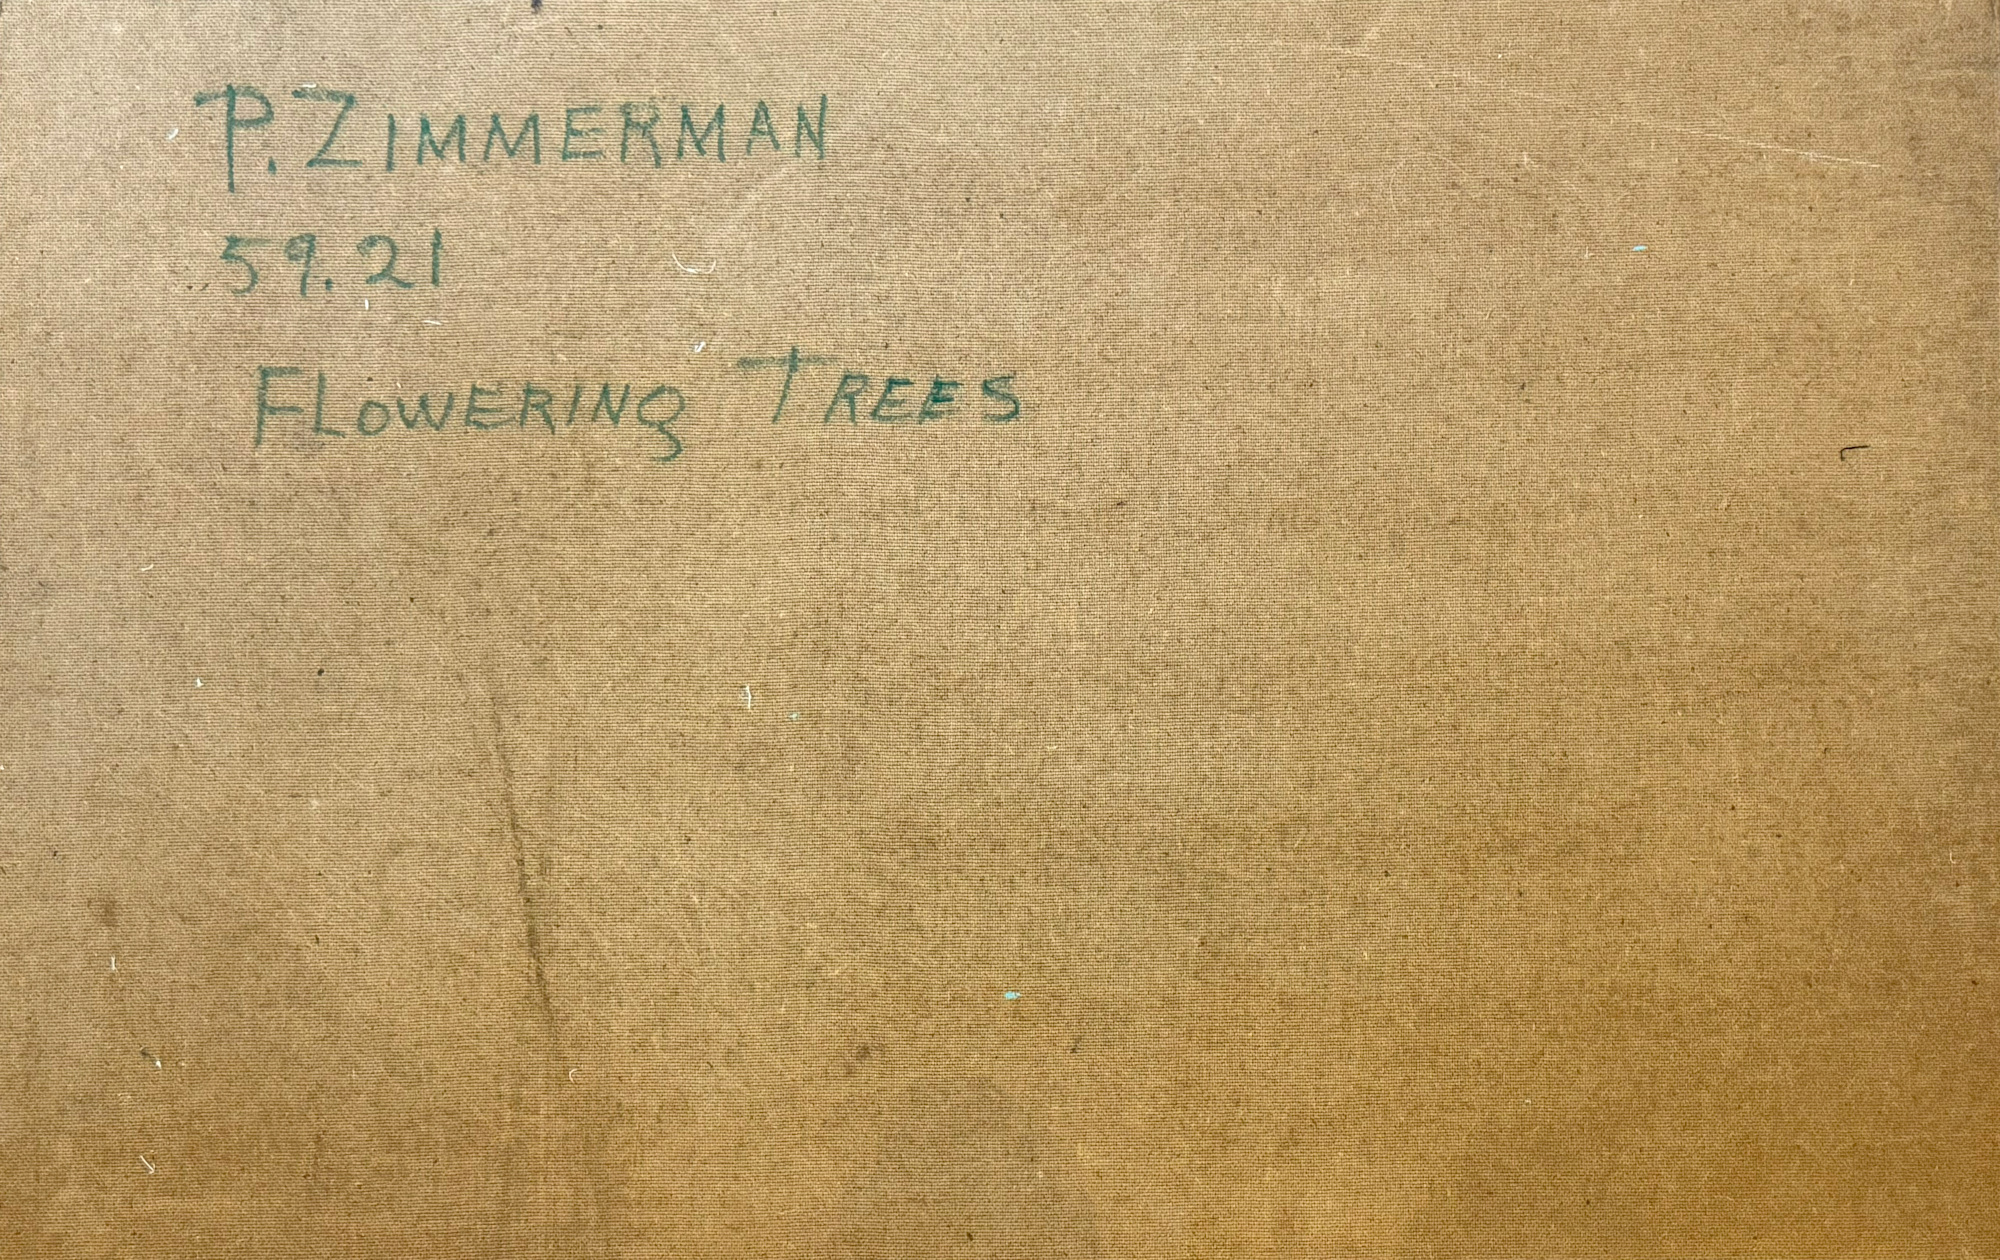 P. ZIMMERMAN
59.21
FLOWERING TREES